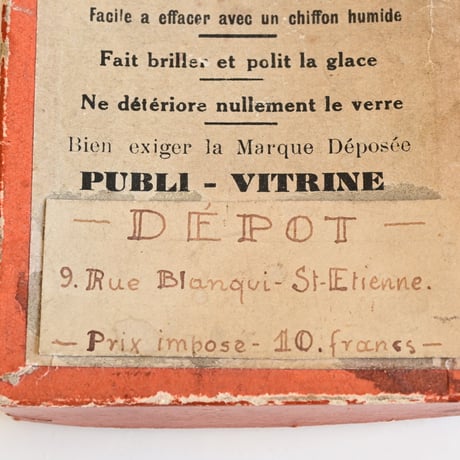 Facile a effacer avec un chiffon humide
Fait briller et polit la glace
Ne détériore nullement le verre
Bien exiger la Marque Déposée
PUBLI - VITRINE
- DÉPOT -
9. Rue Blanqui - St-Etienne.
- Prix imposé - 10. francs -